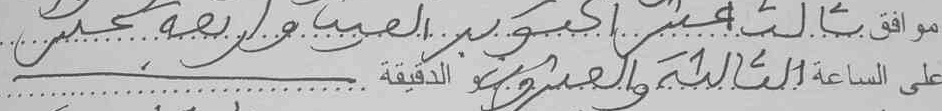 موافق ثالث عشر اكتوبر الفين واربعة عشر
على الساعة الثالثة والعشرون و الدقيقة